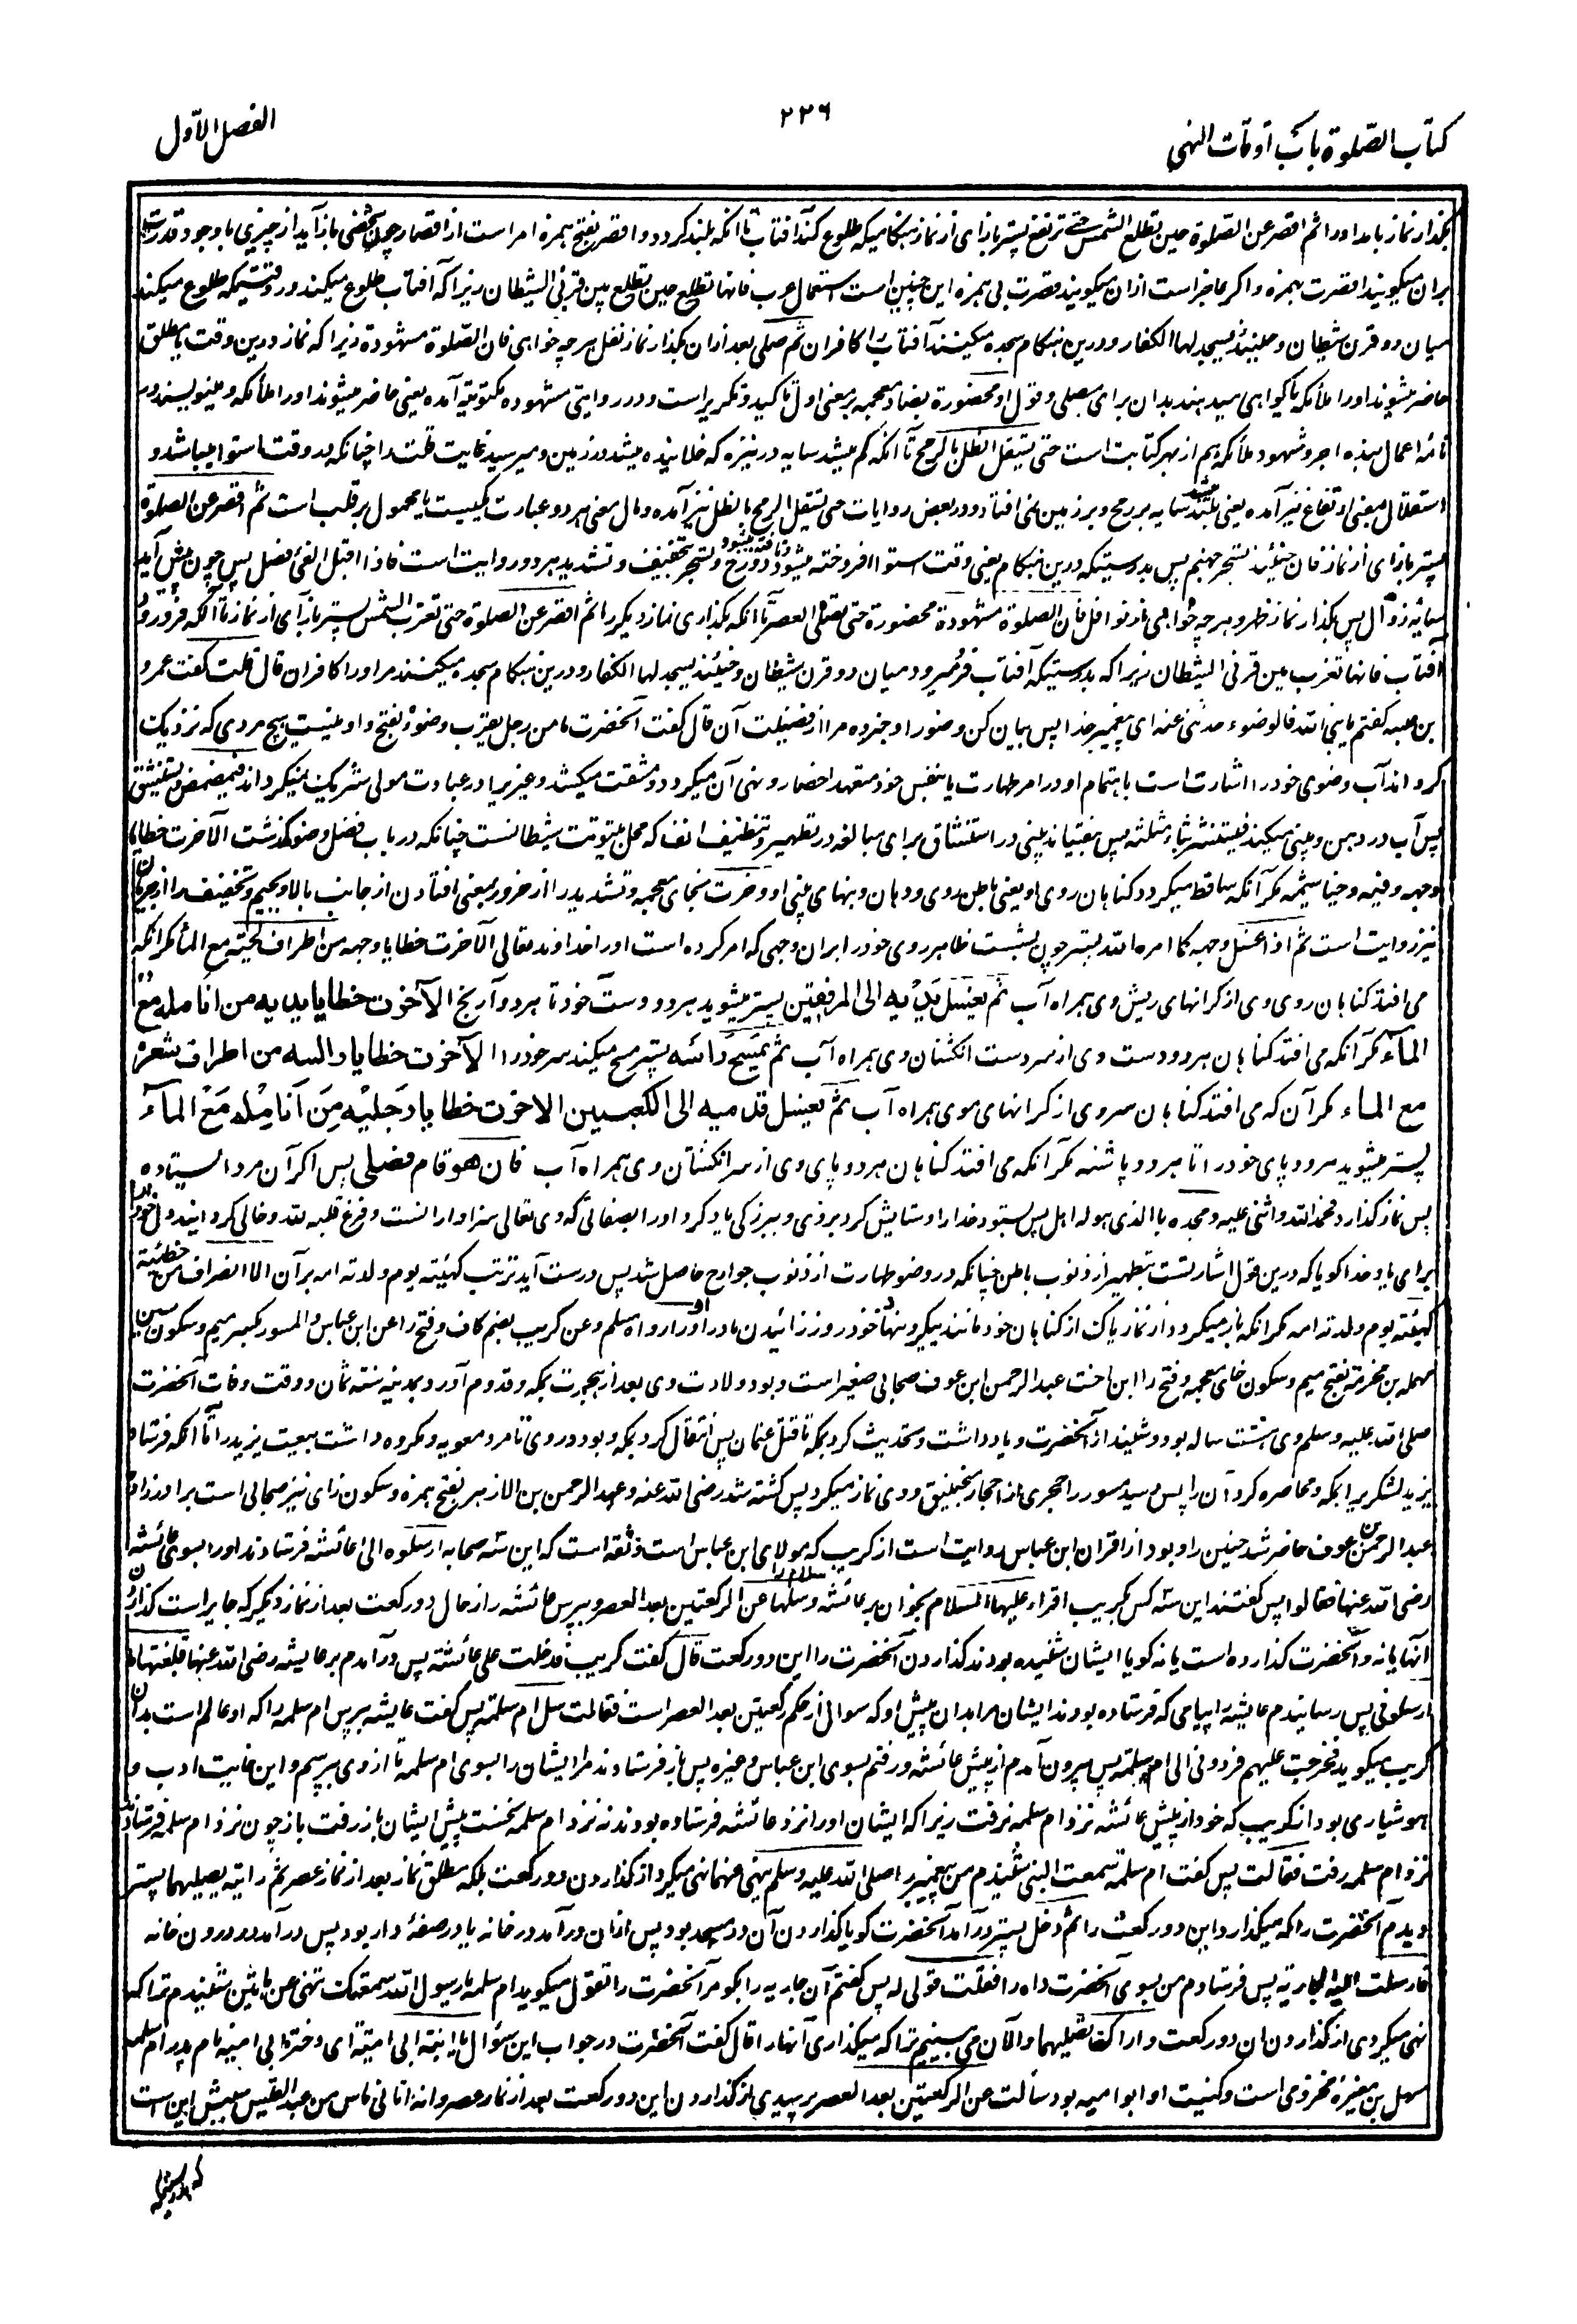 کتاب الصّلوة باب اوقات النهی
۲۲۶
الفصل الاوّل
بگذار نماز بامداد را ثم اقصر عن الصّلوة حین تطلع الشمس حتی ترتفع پستر باز ای از نماز هنگامیکه طلوع کند آفتاب تا آنکه بلند گردد و اقصر بفتح همزه امر است از اقصار چون شخصی باز آید از چیزی با وجود قدرت
بران میگویند اقصرت بهمزه و اگر عاجز است ازان میگویند قصرت بی همزه این چنین است استعمال عرب فانها تطلع حین تطلع بین قرنی الشیطان زیرا که آفتاب طلوع میکند در وقتیکه طلوع میکند
میان دو قرن شیطان و حینئذ یسجد لها الکفار و درین هنگام سجده میکنند آفتاب را کافران ثم صلی بعد ازان بگذار نماز نفل هر چه خواهی فان الصّلوة مشهودة زیرا که نماز درین وقت یا مطلق
حاضر میشوند او را ملائکه تا گواهی میدهند بدان برای مصلی و قول او محضورة بضاد معجمه بر معنی اول تاکید و تکریر است و در روایتی مشهوده مکتوبة آمده یعنی حاضر میشوند او را ملائکه و مینویسند در
نامۀ اعمال بنده اجر و شهود ملائکه هم از بهر کتابت است حتی یستقل الظل بالرمح تا آنکه کم میشد سایه در نیزه که خلانیده میشد در زمین و میرسید غایت قلت را چنانکه در وقت استوا میباشد و
استقلال بمعنی ارتفاع نیز آمده یعنی بلند سایه بر رمح و بر زمین نمی افتاد و در بعض روایات حتی یستقل الرمح بالظل نیز آمده و مآل معنی هر دو عبارت یکیست یا محمول بر قلب است ثم اقصر عن الصلوة
پستر باز ای از نماز فان حینئذ تسجر جهنم پس بدرستیکه درین هنگام یعنی وقت استوا افروخته میشود دوزخ و تسجر بتخفیف و تشدید هر دو روایت است فاذا اقبل الفئ فصل پس چون پیش آید
سایه زوال پس بگذار نماز ظهر و هر چه خواهی از نوافل فان الصلوة مشهودة محضورة حتی تصلی العصر تا آنکه بگذاری نماز دیگر را ثم اقصر عن الصلوة حتی تغرب الشمس پستر باز آی از نماز تا آنکه فرو رود
آفتاب فانها تغرب بین قرنی الشیطان زیرا که بدرستیکه آفتاب فرو میرود میان دو قرن شیطان و حینئذ یسجد لها الکفار و درین هنگام سجده میکنند مر او را کافران قال قلت گفت عمرو
بن عبسه گفتم یا نبی الله فالوضوء حدثنی عنه ای پیغمبر خدا پس بیان کن وضو را و خبر ده مرا از فضیلت آن قال گفت آنحضرت ما من رجل یقرب وضوءه بفتح واو نیست هیچ مردی که نزدیک
گرداند آب وضوی خود را اشارت است باهتمام او در امر طهارت یا بنفس خود متعهد احضار و تهی آن میگردد و مشقت میکشد و غیر را در عبادت مولی شریک نمیگرداند فیمضمض و یستنشق
پس آب در دهن و بینی میکند فیستنثر بثای مثلثه پس میفشاند بینی در استنشاق برای مبالغه در تطهیر و تنظیف انف که محل بیتوتت شیطانست چنانکه در باب فضل وضو گذشت الا خرت خطایا
وجهه و فیه و خیاشیمه مگر آنکه ساقط میگردد گناهان روی او یعنی باطن روی و دهان و بنهای بینی او و خرت بخای معجمه و تشدید را از خرور بمعنی افتادن از جانب بالا و بجیم و تخفیف را از جریان
نیز روایت است ثم اذا غسل وجهه کما امره الله پستر چون بشست ظاهر روی خود را بران وجهی که امر کرده است او را خداوند تعالی الا خرت خطایا وجهه من اطراف لحیته مع الماء مگر آنکه
می افتد گناهان روی وی از کرانهای ریش وی همراه آب ثم یغسل یدیه الی المرفقین پستر میشوید هر دو دست خود تا هر دو آرنج الا خرت خطایا یدیه من انامله مع
الماء مگر آنکه می افتد گناهان هر دو دست وی از سر دست انگشتان وی همراه آب ثم یمسح رأسه پستر مسح میکند سر خود را الا خرت خطایا راسه من اطراف شعره
مع الماء مگر آن که می افتد گناهان سر وی از کرانهای موی همراه آب ثم یغسل قدمیه الی الکعبین الا خرت خطایا رجلیه من انامله مع الماء
پستر میشوید هر دو پای خود را تا هر دو پاشنه مگر آنکه می افتد گناهان هر دو پای وی از سر انگشتان وی همراه آب فان هو قام فصلی پس اگر آن مرد ایستاده
پس نماز گذارد فحمد الله واثنی علیه و مجده بالذی هو له اهل پس بستود خدا را و ستایش کرد بروی و ببزرگی یاد کرد او را بصفاتی که وی تعالی سزاوار آنست و فرغ قلبه لله و خالی گردانید دل خود را
برای یاد خدا گویا که درین قول اشارتست بتطهیر از ذنوب باطن چنانکه در وضو طهارت از ذنوب جوارح حاصل شد پس درست آید ترتب کهیئته یوم ولدته امه بر آن الا انصرف من خطیئته
کهیئته یوم ولدته امه مگر آنکه باز میگردد از نماز پاک از گناهان خود مانند پیکر و نهاد خود روز زائیدن مادر او را رواه مسلم و عن کریب بضم کاف و فتح را عن ابن عباس والمسور بکسر میم و سکون سین
مهمله بن مخرمة بفتح میم و سکون خای معجمه و فتح را ابن اخت عبد الرحمن ابن عوف صحابی صغیر است و بود ولادت وی بعد از هجرت بمکه و قدوم آورد بمدینه سنه ثمان و وقت وفات آنحضرت
صلی الله علیه وسلم وی هشت ساله بود و شنید از آنحضرت و یاد داشت و تحدیث کرد بمکه تا قتل عثمان پس انتقال کرد بمکه و بود در وی تا مرد معویه و مکروه داشت بیعت یزید را تا آنکه فرستاد
یزید لشکری را بمکه و محاصره کرد آن را پس رسید مسور را حجری از احجار منجنیق و وی نماز میکرد پس کشته شد رضی الله عنه و عبد الرحمن بن الازهر بفتح همزه و سکون زای نیز صحابی است برادرزاده
عبد الرحمن بن عوف حاضر شد حنین را و بود از اقران ابن عباس روایت است از کریب که مولای ابن عباس است و ثقه است که این سه صحابه ارسلوه الی عائشه فرستادند او را بسوی عائشه
رضی الله عنها فقالوا پس گفتند این سه کس بکریب اقراء علیها السلام بخوان بر عائشه سلام را و سلها عن الرکعتین بعد العصر و بپرس عائشه را از حال دو رکعت بعد از نماز دیگر که جایز است گذاردن
آنها یا نه و آنحضرت گذارده است یا نه گویا ایشان شنیده بودند گذاردن آنحضرت را این دو رکعت قال گفت کریب فدخلت علی عائشة پس در آمدم بر عایشه رضی الله عنها فبلغتها ما
ارسلونی پس رسانیدم عایشه را پیامی که فرستاده بودند ایشان مرا بدان پیش او که سوال از حکم رکعتین بعد العصر است فقالت سل ام سلمة پس گفت عایشه بپرس ام سلمه را که او عالم است بدان
کریب میگوید فخرجت علیهم فردونی الی ام سلمة پس بیرون آمدم از پیش عائشه و رفتم بسوی ابن عباس و غیره پس باز فرستادند مرا ایشان را بسوی ام سلمه تا از وی بپرسم و این غایت ادب و
هوشیاری بود از کریب که خود از پیش عائشه نزد ام سلمه نرفت زیرا که ایشان او را نزد عائشه فرستاده بودند نه نزد ام سلمه نخست پیش ایشان باز رفت باز چون نزد ام سلمه فرستادند
نزد ام سلمه رفت فقالت پس گفت ام سلمة سمعت النبی شنیدم من پیغمبر را صلی الله علیه وسلم ینهی عنهما نهی میکرد از گذاردن دو رکعت بلکه مطلق نماز بعد از نماز عصر ثم رایته یصلیهما پستر
دیدم آنحضرت را که میگذارد این دو رکعت را ثم دخل پستر در آمد آنحضرت گویا گذاردن آن در مسجد بود پس ازان در آمد در خانه یا در صفۀ دار بود پس در آمد در درون خانه
فارسلت الیه الجاریة پس فرستادم من بسوی آنحضرت داه را فقلت قولی له پس گفتم آن جاریه را بگو مر آنحضرت را تقول میگوید ام سلمة یا رسول الله سمعتک تنهی عن هاتین شنیدم ترا که
نهی میکردی از گذاردن این دو رکعت و اراک تصلیهما والآن می بینیم ترا که میگذاری آنها را قال گفت آنحضرت در جواب این سؤال یا ابنة ابی امیة ای دختر ابی امیه نام پدر ام سلمه
سهل بن مغیره مخزومی است و کنیت او ابو امیه بود سألت عن الرکعتین بعد العصر پرسیدی از گذاردن این دو رکعت بعد از نماز عصر و انه اتانی ناس من عبد القیس سببش این است